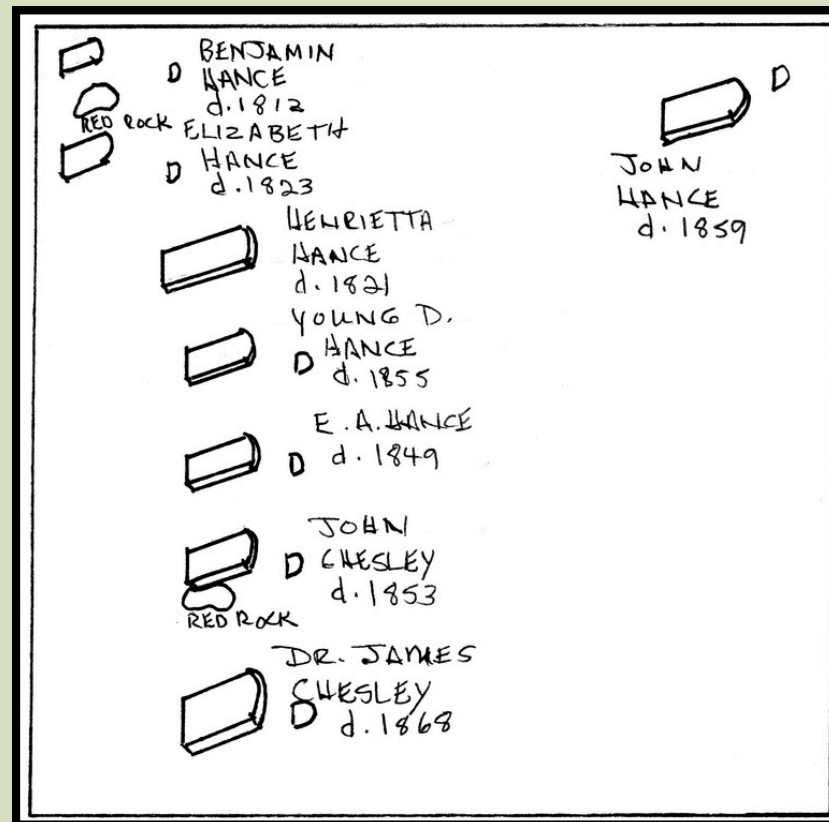 BENJAMIN
D HANCE
d. 1812
RED ROCK
ELIZABETH
D HANCE
d. 1823
HENRIETTA
HANCE
d. 1821
YOUNG D.
D HANCE
d. 1855
E. A. HANCE
D d. 1849
JOHN
D CHESLEY
d. 1853
RED ROCK
DR. JAMES
CHESLEY
D d. 1868
D
JOHN
HANCE
d. 1859